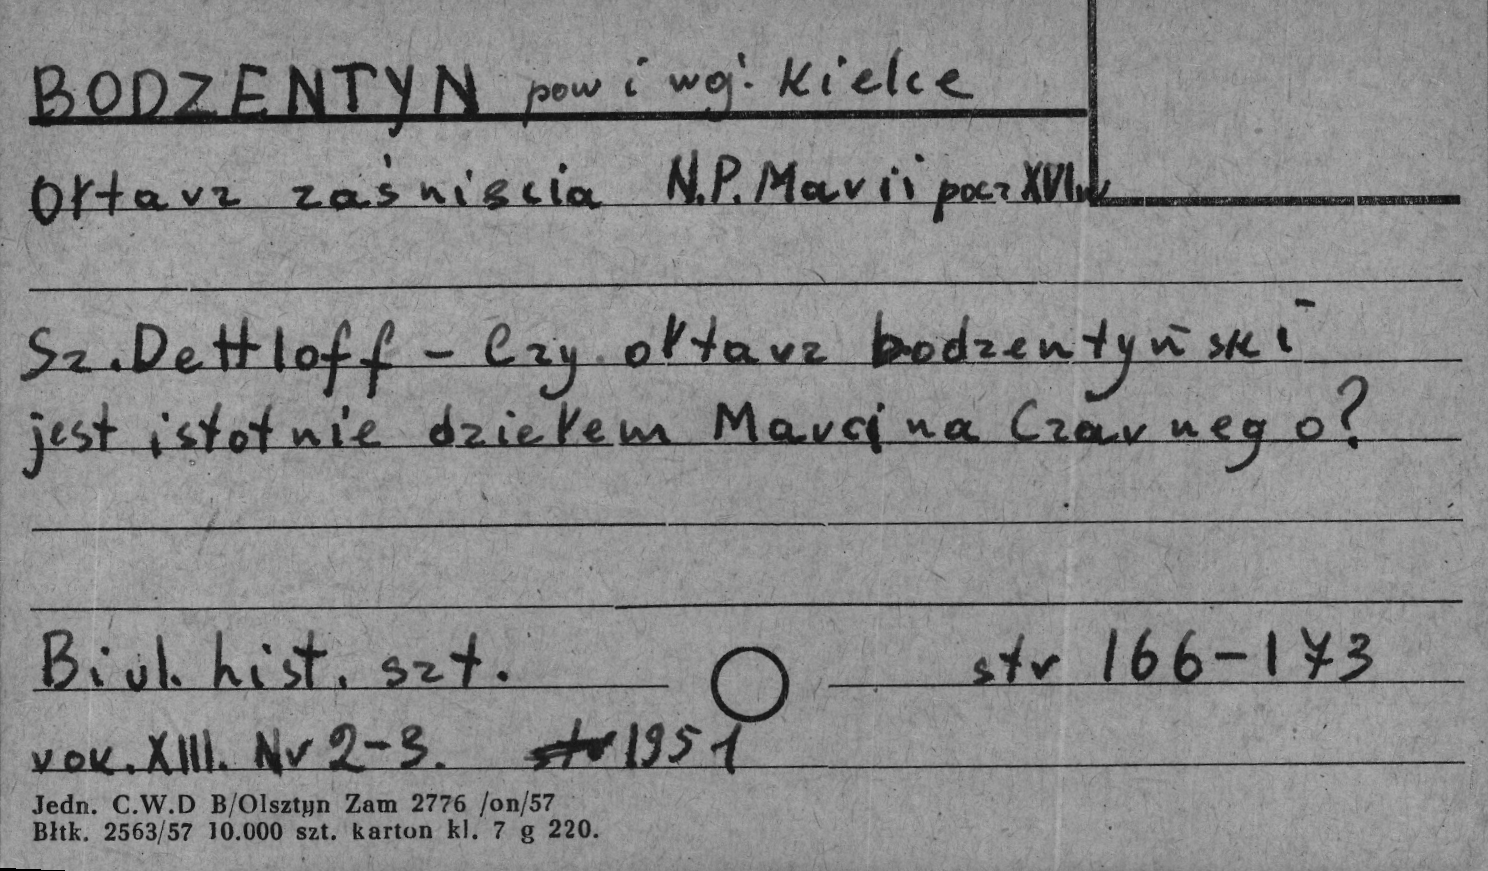 BODZENTYN pow i woj. Kielce
Ołtarz zaśnięcia N.P. Marii pocz XVI w
Sz. Dettloff - Czy ołtarz bodzentyński
jest istotnie dziełem Marcina Czarnego?
Biul. hist. szt. str 166-173
rok. XIII. Nr 2-3. str 1951
Jedn. C.W.D B/Olsztyn Zam 2776 /on/57
Błtk. 2563/57 10.000 szt. karton kl. 7 g 220.